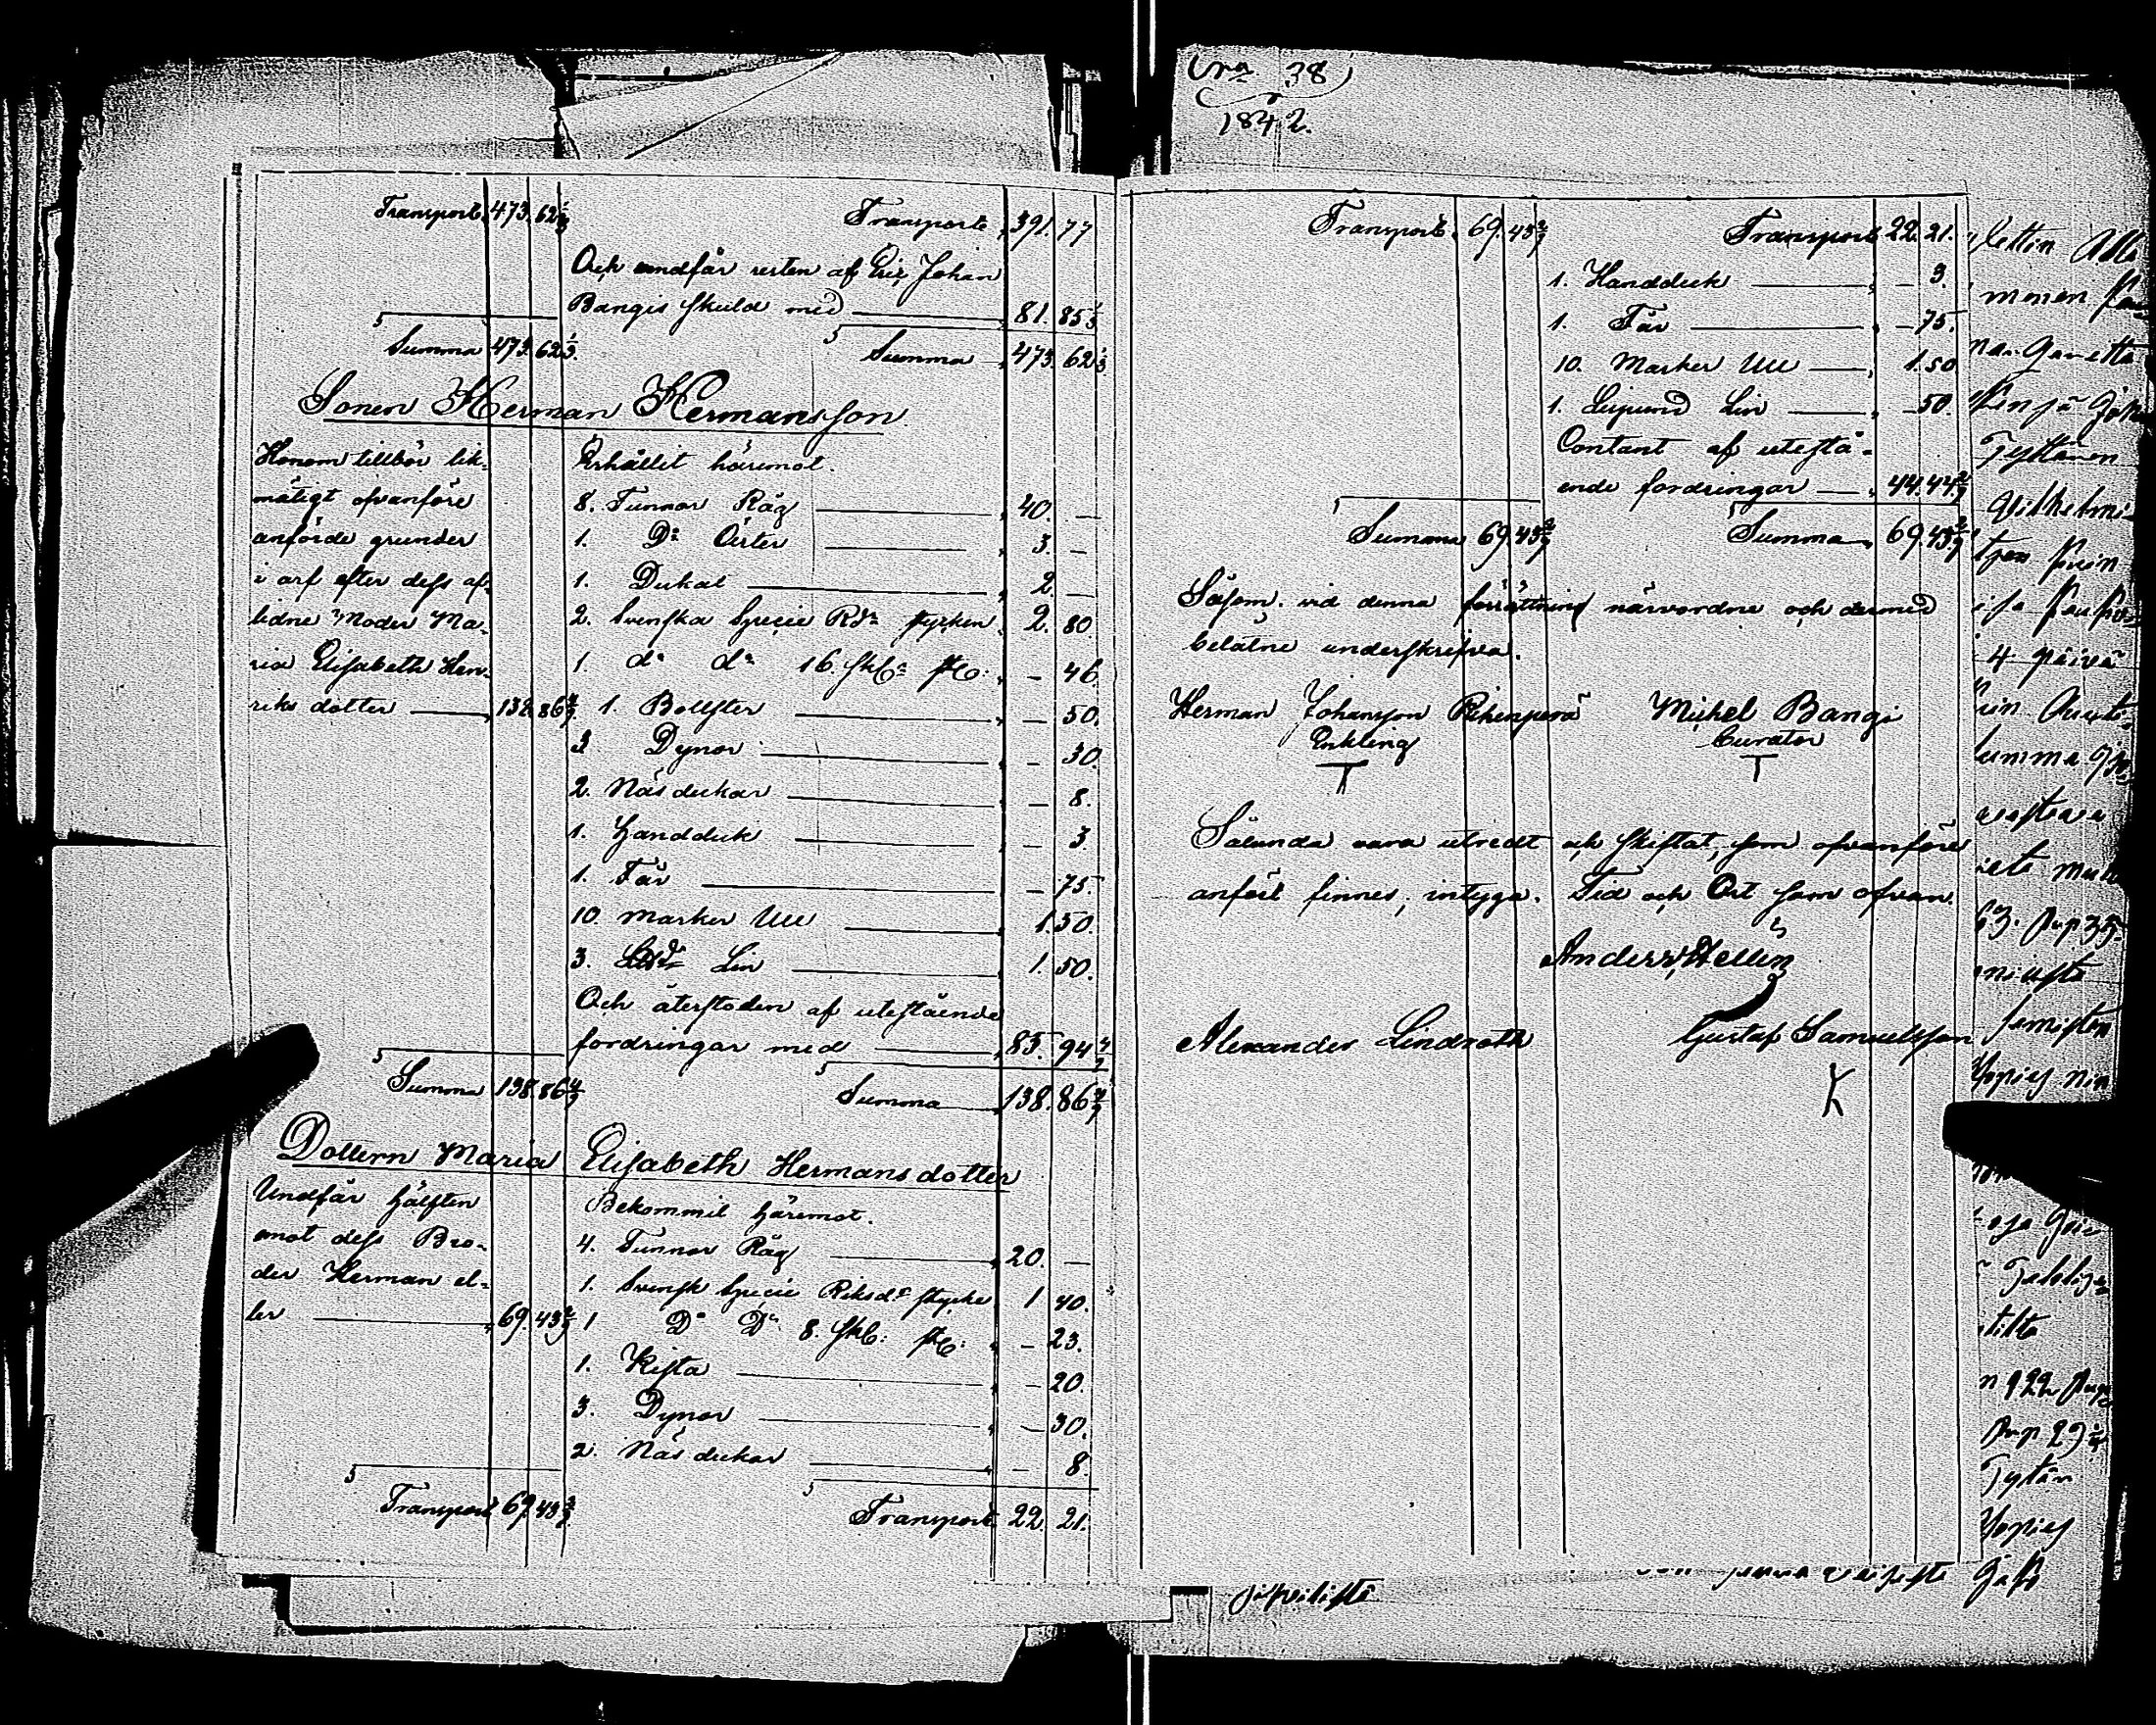 Transport 473. 62 1/3
Transporte 391. 77
Och undfår resten af Eric Johan
Bangis skuld med 81. 85 1/3
Summa 473. 62 1/3
Summa 473. 62 1/3
Sonen Herman Hermansson
Honom tillhör lik-
mätigt ofvanföre
anförde grunder
i arf efter dess af-
lidne Moder Ma-
ria Elisabeth Hen-
riks dotter 138. 86 4/9
Erhållit häremot.
8. Tunnor Råg 40. —
1. Do Ärter 3. —
1. Dukat 2. —
2. Svenska Specie Rdr stycken 2. 80
1. do do 16. sk: st: — 46
1. Bolster — 50.
3. Dynor — 30.
2. Näsdukar — 8.
1. Handduk — 3.
1. Får — 75.
10. marker Ull 1. 50.
3. Lin 1. 50.
Och återstoden af utestående
fordringar med 85. 94 4/9
Summa 138. 86 4/9
Summa 138. 86 4/9
Dottern Maria Elisabeth Hermansdotter
Undfår hälften
emot dess Bro-
der Herman el-
ler 69. 43 2/9
Bekommit häremot.
4. Tunnor Råg 20. —
1. Svensk Specie Riksdr stycke 1 40.
1 Do Do 8. sk: st: — 23.
1. Kista — 20.
3. Dynor — 30.
2. Näsdukar — 8.
Transport 69. 43 2/9
Transport 22. 21.
38
1842.
Transport 69. 43 2/9
Transport 22. 21.
1. Handduk — 3.
1. Får — 75.
10. Marker Ull 1. 50
1. Lispund Lin — 50.
Contant af utestå-
ende fordringar 44. 44 2/9
Summa 69. 43 2/9
Summa 69. 43 2/9
Såsom vid denna förrättning närvordne och dermed
belåtne underskrifva.
Herman Johansson Michel Bangi
Enkling Curator
Sålunda vara utredt och skiftat, som ofvanföre
anfört finnes, intyga. Tid och Ort som ofvan.
Anders Hellén
Alexander Lindroth Gustaf Samuelsson